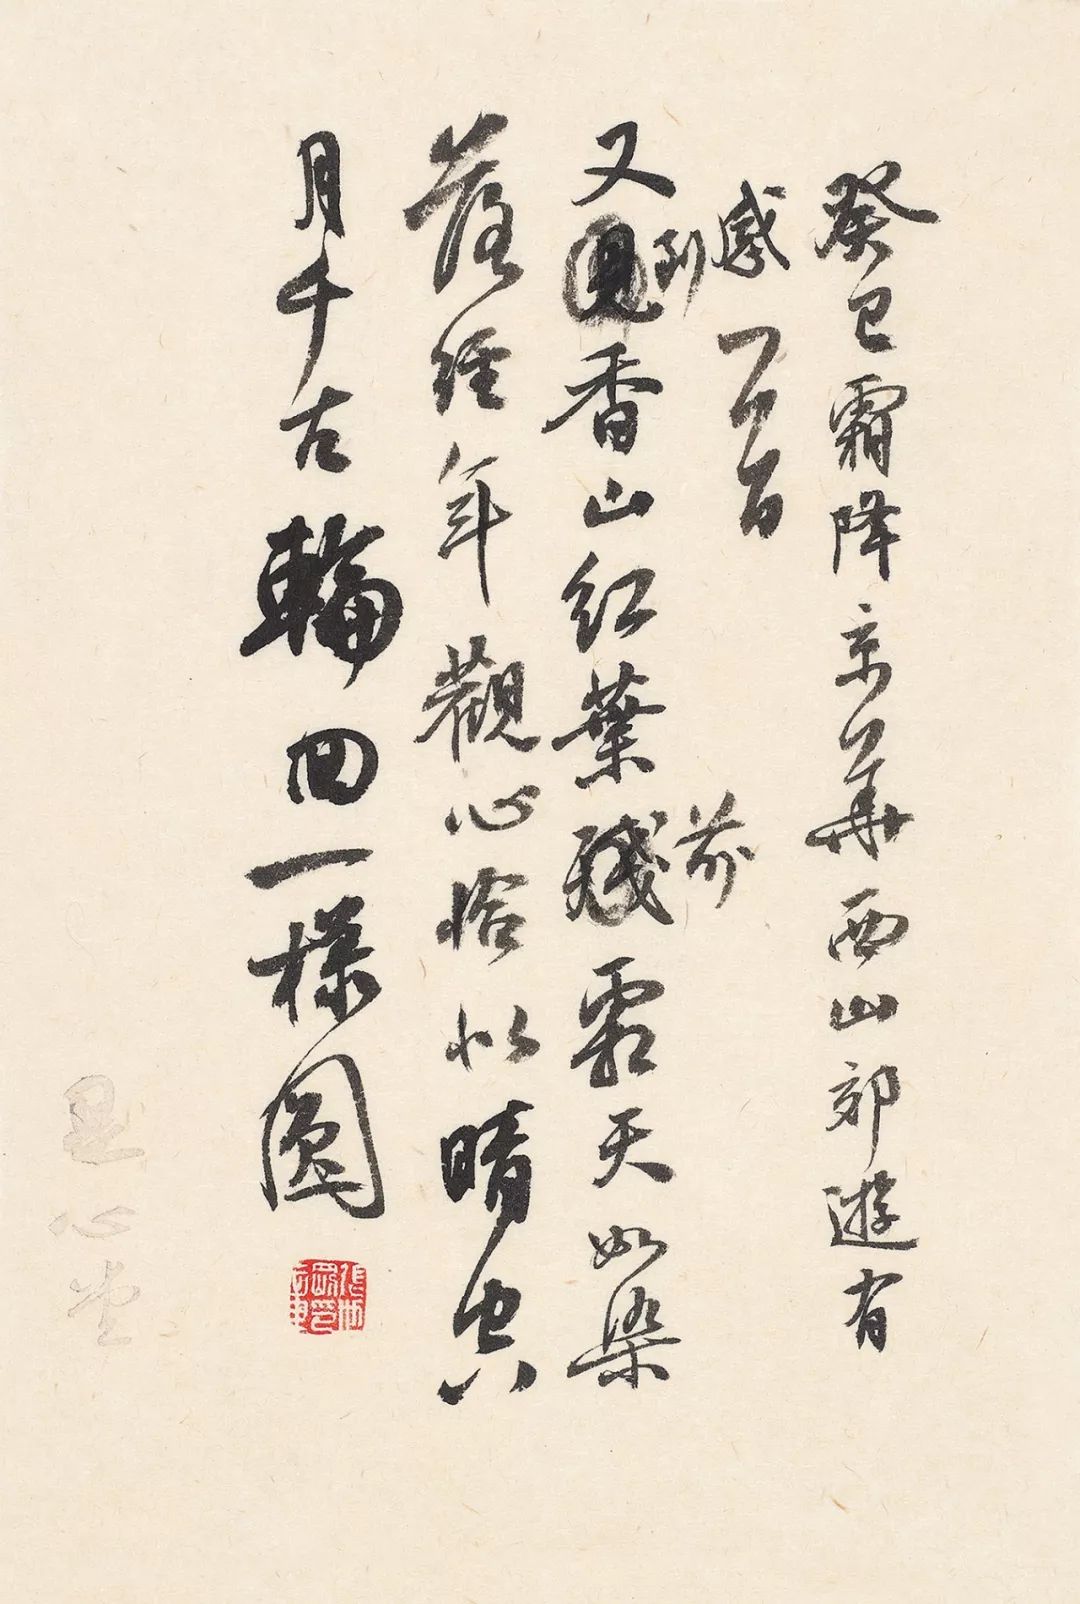 癸巳霜降京華西山郊遊有
感一首
到
前
又見香山紅葉殘霜天如染
落經年觀心恰似晴空
月千古輪回一樣圓